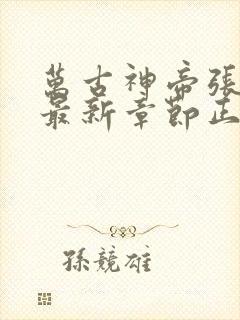 萬古神帝張
最新章節正
孫競雄